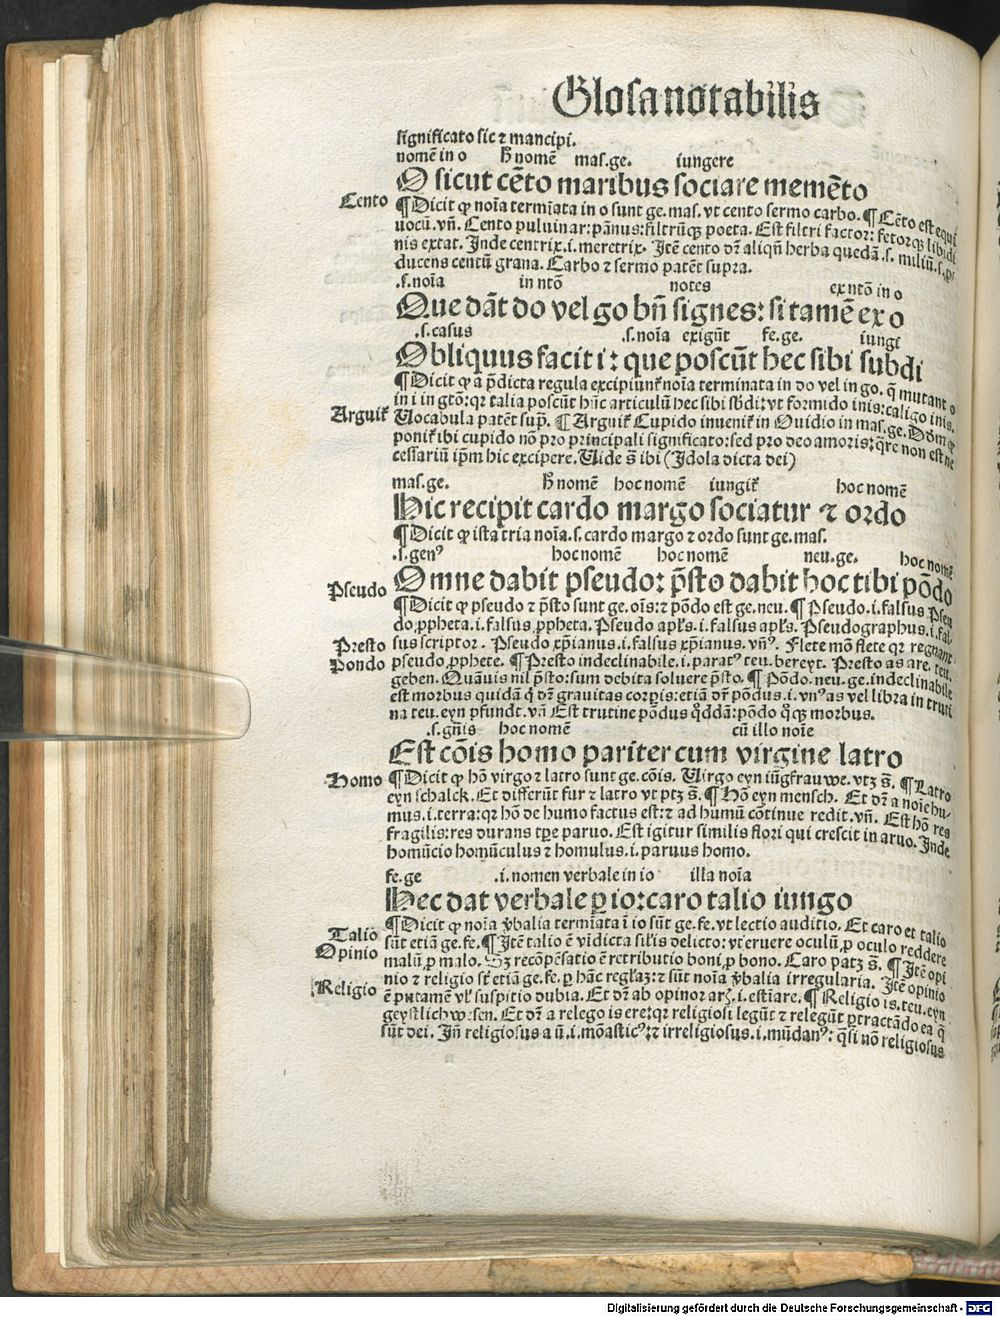 Glosa notabilis
significato sic ⁊ mancipi.
nomē in o ħ nomē mas.ge. iungere
O sicut cēto maribus sociare memēto
Cento
¶Dicit ꝙ noīa termīata in o sunt ge.mas. vt cento sermo carbo. ¶Cēto est equi
uocū.vn̄. Cento puluinar: pānus: filtrūqꝫ poeta. Est filtri factor: fetorqꝫ libidi
nis extat. Inde centrix.i.meretrix. Itē cento dr̄ aliqn̄ herba quedā.s. miliū.s.
ducens centū grana. Carbo ⁊ sermo patēt supra.
.s.noīa in ntō notes ex ntō in o
Que dāt do vel go bn̄ signes: si tamē ex o
.s.casus .s.noīa exigūt fe.ge. iungi
Obliquus facit i: que poscūt hec sibi subdi
¶Dicit ꝙ a p̄dicta regula excipiunt᷑ noīa terminata in do vel in go. q̄ mutant o
in i in gtō: qꝛ talia poscūt hūc articulū hec sibi sb̄di: vt formido inis: caligo inis.
Arguit᷑
Uocabula patēt sup̄. ¶ Arguit᷑ Cupido inuenit᷑ in Ouidio in mas.ge. Dōm ꝙ
ponit᷑ ibi cupido nō pro principali significato: sed pro deo amoris: q̄re non est ne
cessariū ip̄m hic excipere. Uide s̄ ibi (Idola dicta dei)
mas.ge. ħ nomē hoc nomē iungit᷑ hoc nomē
Hic recipit cardo margo sociatur ⁊ ordo
¶Dicit ꝙ ista tria noīa.s.cardo margo ⁊ ordo sunt ge.mas.
.s.genꝰ hoc nomē hoc nomē neu.ge. hoc nomē
Omne dabit pseudo: p̄sto dabit hoc tibi pōdo
Pseudo
¶Dicit ꝙ pseudo ⁊ p̄sto sunt ge.oīs: ⁊ pōdo est ge.neu. ¶Pseudo.i.falsus Pseu
do ꝓpheta.i.falsus ꝓpheta. Pseudo apl̄s.i.falsus apl̄s. Pseudographus.i.fal
Presto
sus scriptor. Pseudo xp̄ianus.i.falsus xp̄ianus.vnꝰ. Flete mō flete qꝛ regnant
Pondo
pseudo ꝓphete. ¶Presto indeclinabile.i.paratꝰ teu.bereyt. Presto as are. teu.
geben. Quāuis nil p̄sto: sum debita soluere p̄sto. ¶Pōdo.neu.ge.indeclinabile
est morbus quidā q̄ dr̄ grauitas corpis: etiā dr̄ pōdus.i.vnꝰas vel libra in truti
na teu.eyn pfundt.vn̄ Est trutine pōdus qd̄dā: pōdo qͦqꝫ morbus.
.s.gn̄is hoc nomē cū illo noīe
Est cōis homo pariter cum virgine latro
Homo
¶Dicit ꝙ hō virgo ⁊ latro sunt ge.cōis. Uirgo eyn iūgfrauwe.vtꝫ s̄. ¶Latro
eyn schalck. Et differūt fur ⁊ latro vt ptꝫ s̄. ¶Hō eyn mensch. Et dr̄ a noīe hu-
mus.i.terra: qꝛ hō de humo factus est: ⁊ ad humū cōtinue redit.vn̄. Est hō res
fragilis: res durans tp̄e paruo. Est igitur similis flori qui crescit in aruo. Inde
homūcio homūculus ⁊ homulus.i.paruus homo.
fe.ge .i.nomen verbale in io illa noīa
Hec dat verbale ꝑ io: caro talio iungo
¶Dicit ꝙ noīa v̄balia termīata ī io sūt ge.fe.vt lectio auditio. Et caro et talio
Talio
sūt etiā ge.fe. ¶Itē talio ē vīdicta sil̄is delicto: vt eruere oculū ꝓ oculo reddere
Opinio
malū ꝓ malo. Sꝫ recōpēsatio ē retributio boni ꝓ bono. Caro patꝫ s̄. ¶Itē opi
nio ⁊ religio st̄ etiā ge.fe. ꝑ hāc regl̄aꝫ: ⁊ sūt noīa v̄balia irregularia. Itē opinio
Religio
ē putamē vl̓ suspitio dubia. Et dr̄ ab opinor arꝭ.i.estīare. ¶Religio is.teu.eyn
geystlich wesen. Et dr̄ a relego is ere: qꝛ religiosi legūt ⁊ relegūt ꝑtractādo ea q̄
sūt dei. Jn̄ religiosus a ū.i.mōasticꝰ: ⁊ irreligiosus.i.mūdanꝰ: q̄si nō religiosus
Digitalisierung gefördert durch die Deutsche Forschungsgemeinschaft - DFG